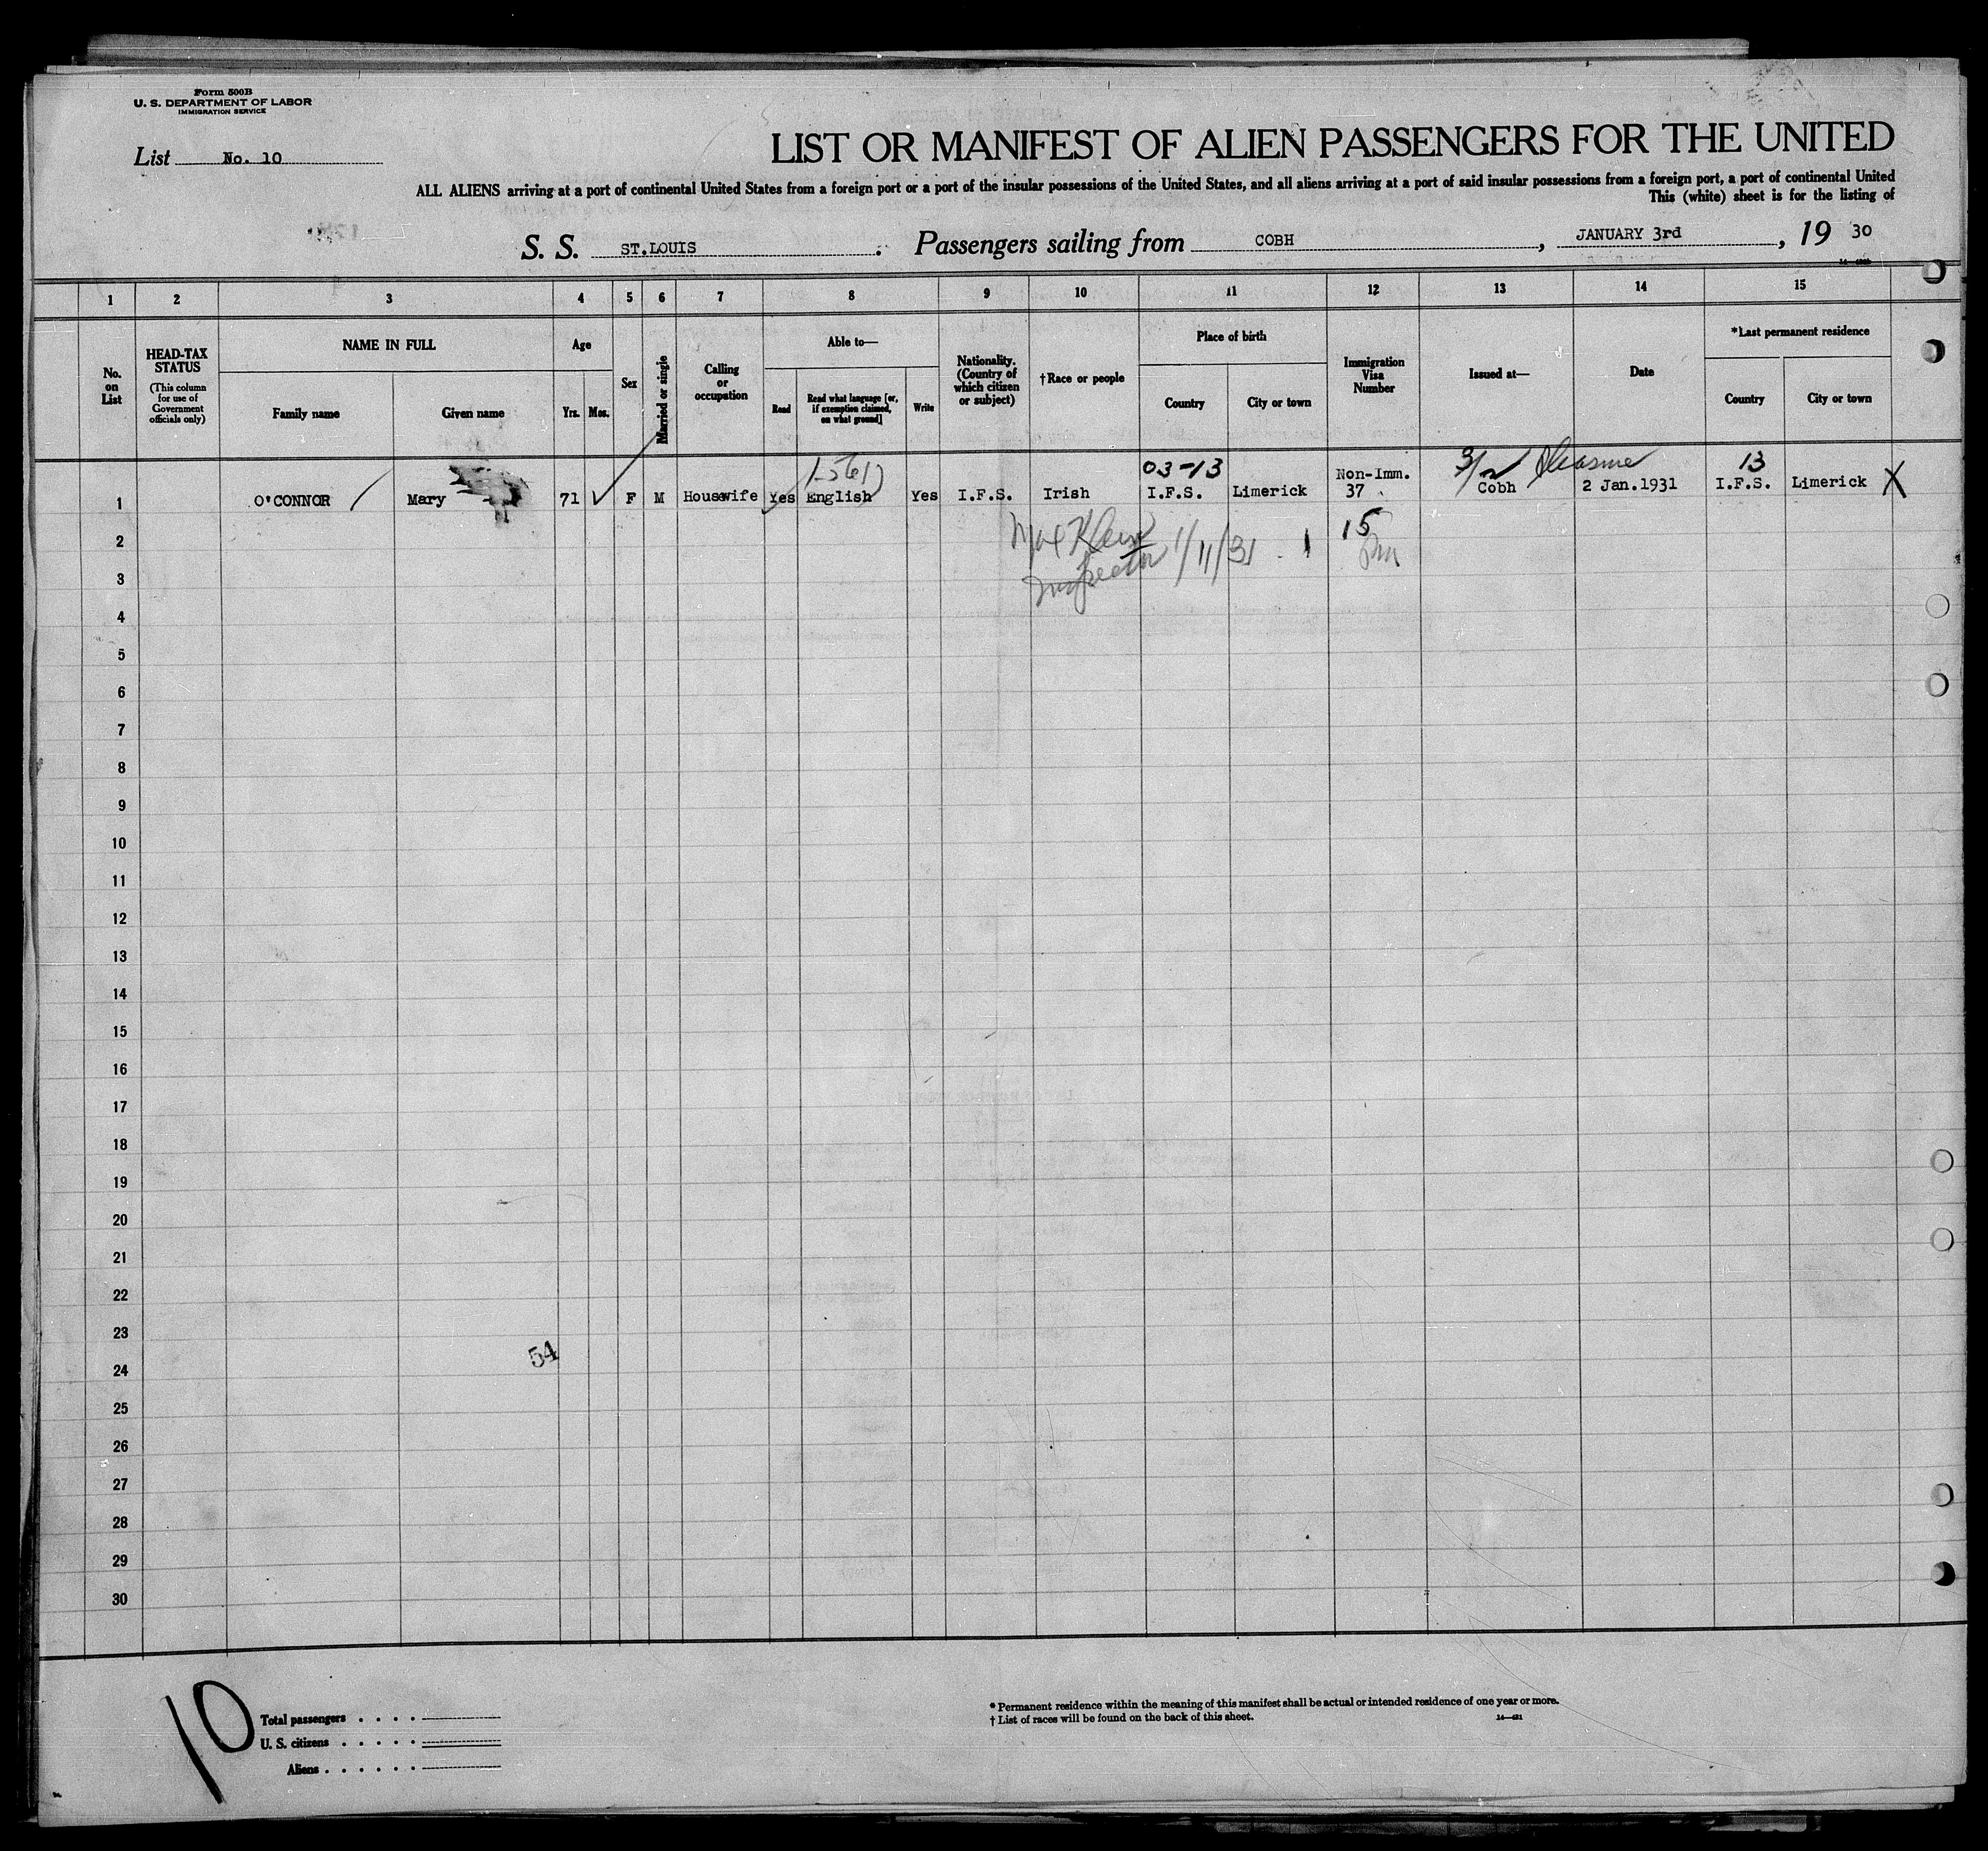 Form 500B
U. S. DEPARTMENT OF LABOR
IMMIGRATION SERVICE
List No. 10
LIST OR MANIFEST OF ALIEN PASSENGERS FOR THE UNITED
ALL ALIENS arriving at a port of continental United States from a foreign port or a port of the insular possessions of the United States, and all aliens arriving at a port of said insular possessions from a foreign port, a port of continental United
This (white) sheet is for the listing of
S. S. ST.LOUIS. Passengers sailing from COBH, JANUARY 3rd, 19 30
1 2 3 4 5 6 7 8 9 10 11 12 13 14 15
No. on List
HEAD-TAX STATUS
(This column for use of Government officials only)
NAME IN FULL
Family name Given name
Age
Yrs. Mos.
Sex
Married or single
Calling or occupation
Able to—
Read
Read what language [or, if exemption claimed, on what ground]
Write
Nationality. (Country of which citizen or subject)
†Race or people
Place of birth
Country City or town
Immigration Visa Number
Issued at—
Date
*Last permanent residence
Country City or town
03-13 3/2 Pleasure 13
1 O'CONNOR Mary 71 F M Housewife Yes English Yes I.F.S. Irish I.F.S. Limerick Non-Imm. 37 Cobh 2 Jan.1931 I.F.S. Limerick X
2 Max Klein 1/11/31 15
3 Inspector
4
5
6
7
8
9
10
11
12
13
14
15
16
17
18
19
20
21
22
23
54
24
25
26
27
28
29
30
10
Total passengers
U. S. citizens
Aliens
* Permanent residence within the meaning of this manifest shall be actual or intended residence of one year or more.
† List of races will be found on the back of this sheet.